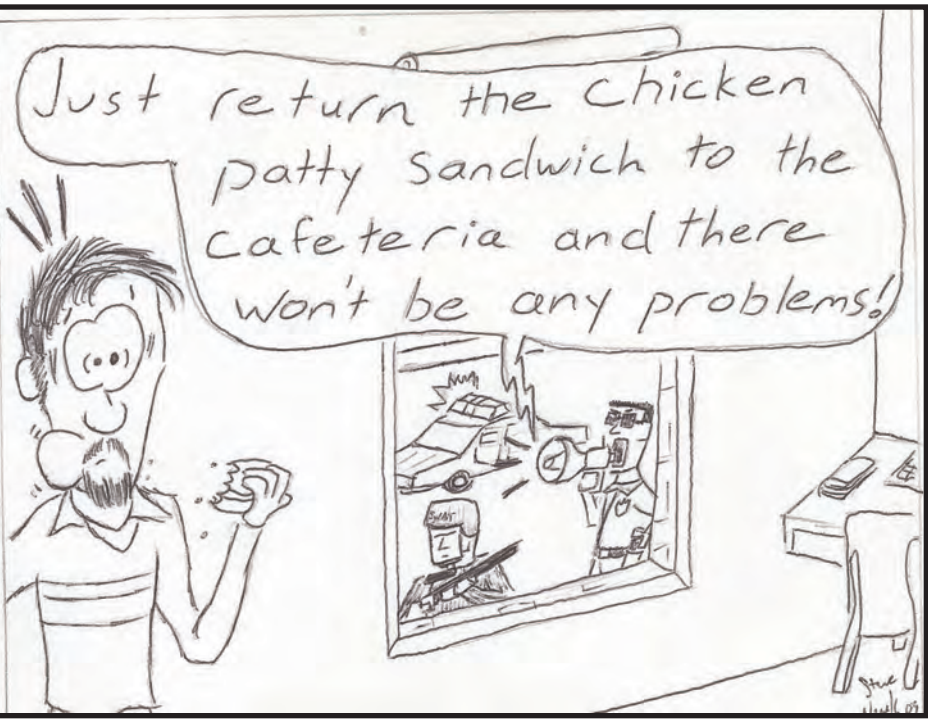 Just return the Chicken
patty Sandwich to the
cafeteria and there
won't be any problems!
SWAT
Steve
09